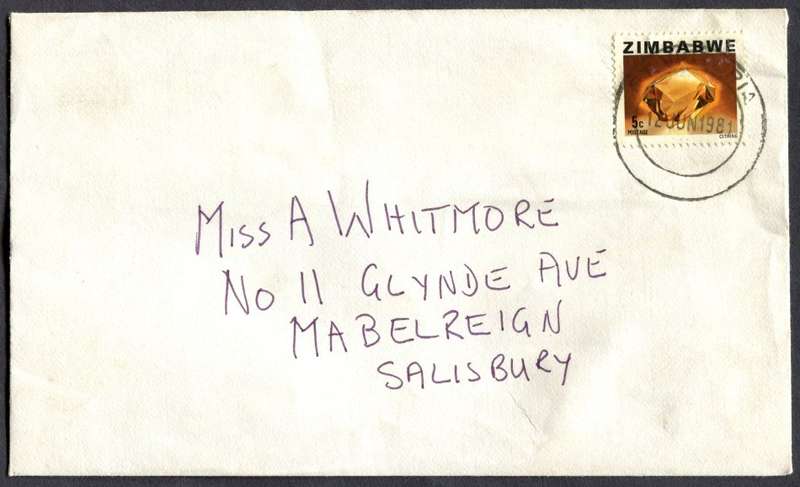 ZIMBABWE
5c
POSTAGE
CITRINE
12 JUN 1981
MISS A WHITMORE
NO 11 GLYNDE AVE
MABELREIGN
SALISBURY